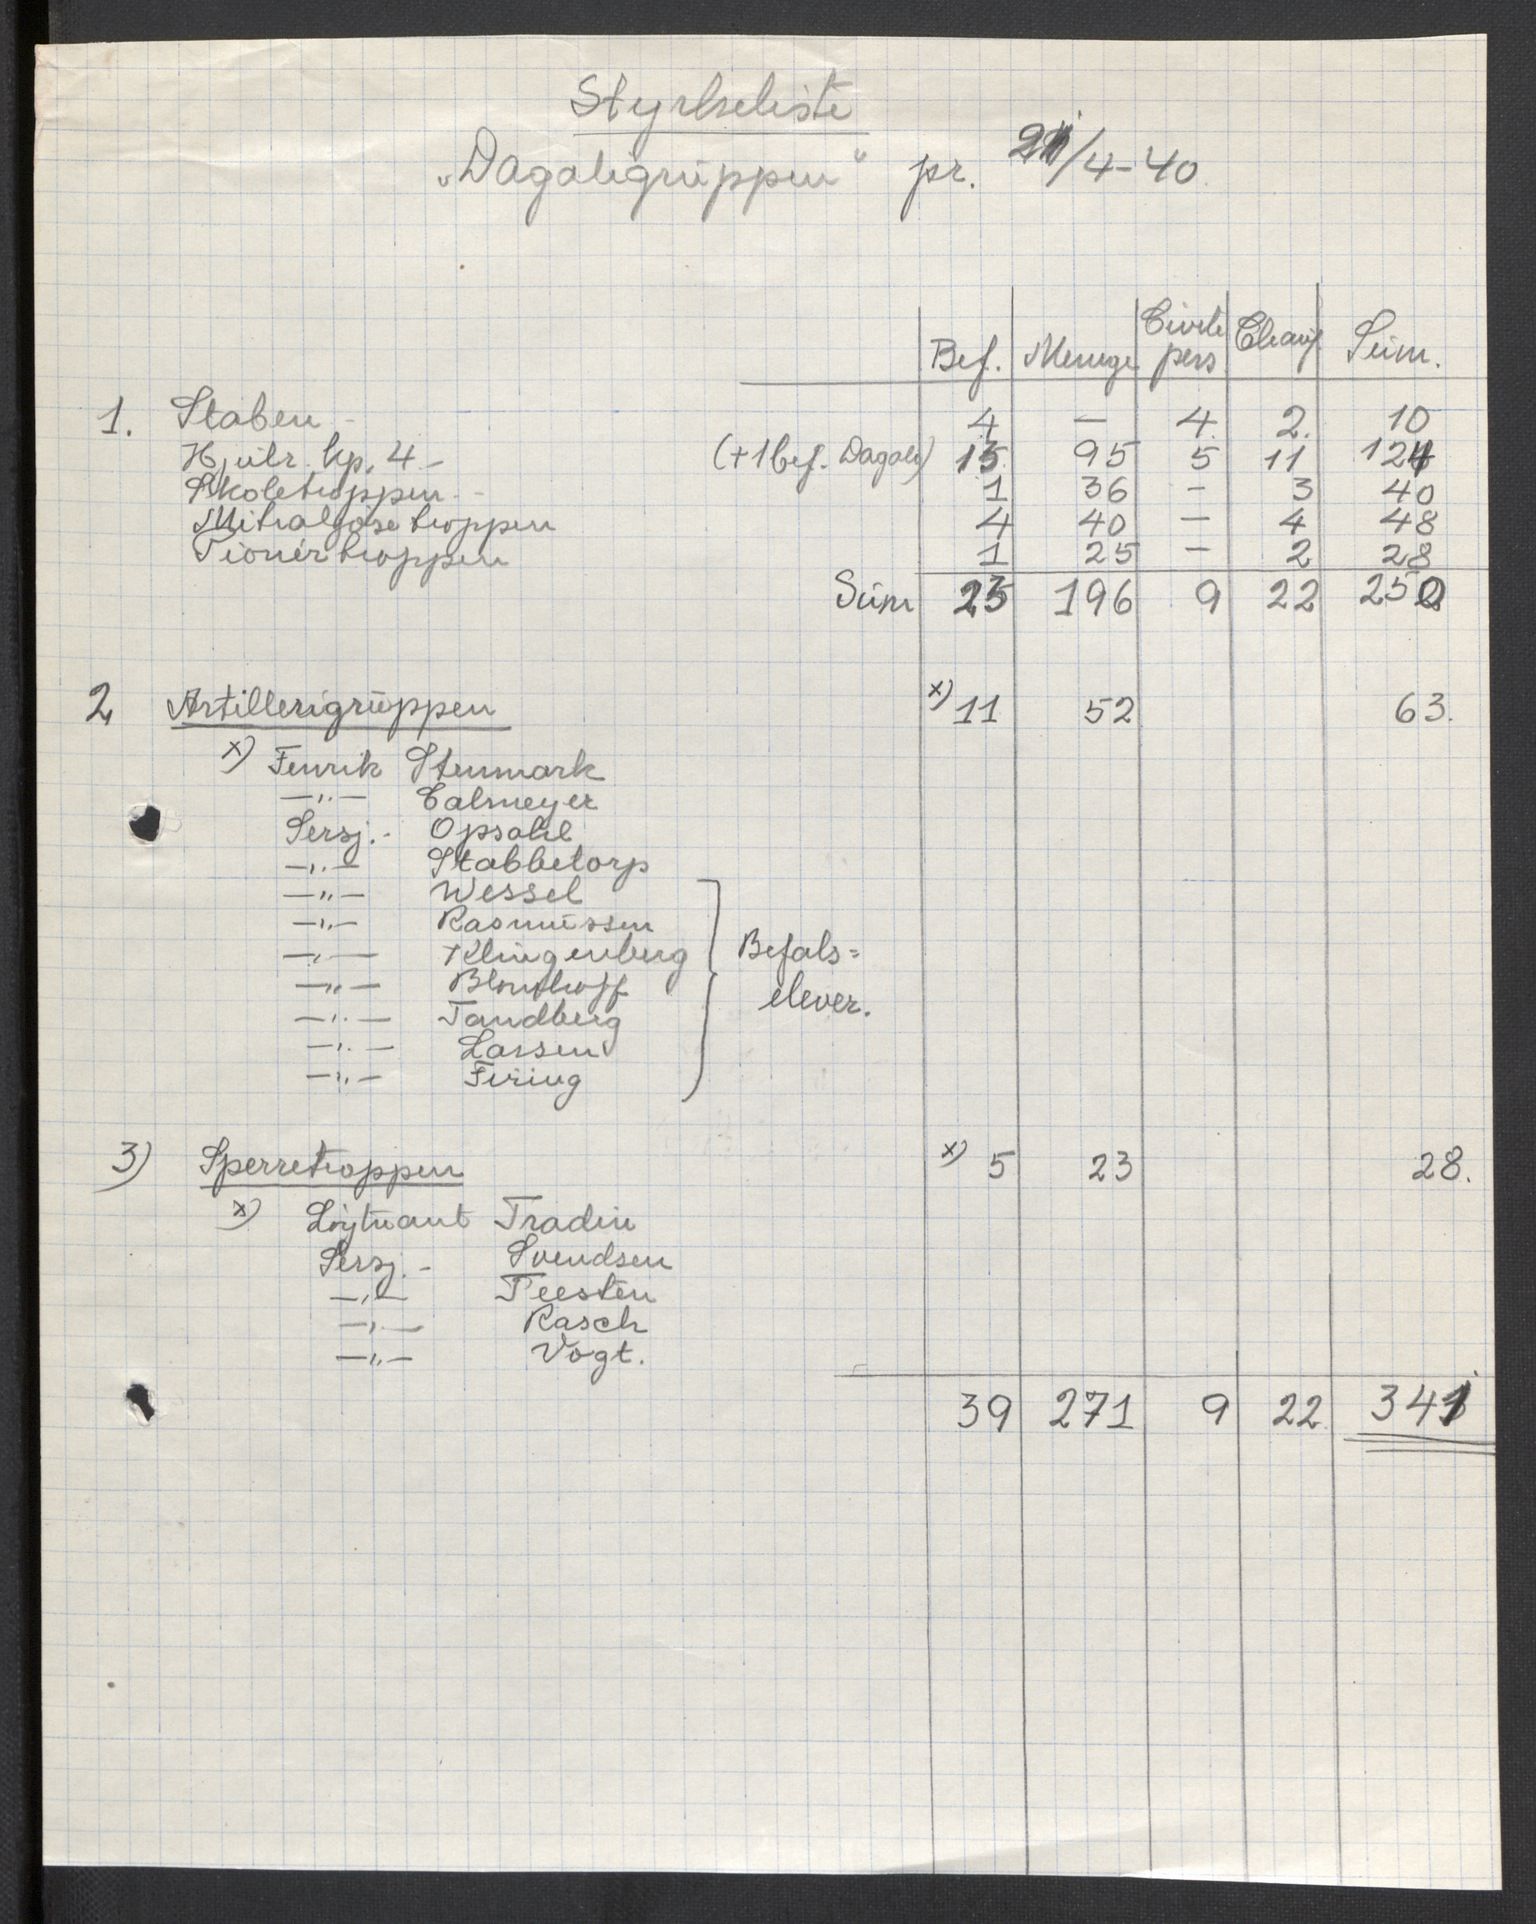 Styrkeliste
„Dagaligruppen“ pr. 21/4-40
Bef. Menige Civile pers Sum.
1. Staben - 4 — 4. 2. 10
Hjulr. kp. 4 - (+1 bef. Dagali) 13 95 5 11 124
Skoletroppen - 1 36 - 3 40
Mitraljøsetroppen 4 40 — 4 48
Pionértroppen 1 25 - 2 28
Sum 23 196 9 22 250
2 Artillerigruppen x) 11 52 63.
x) Fenrik Stenmark
—„— Calmeyer
Sersj. - Opsahl
—„— Stabbetorp
—„— Wessel
—„— Rasmussen
—„— Klingenberg Befals=
—„— Blomhoff elever.
—„— Tandberg
—„— Larsen
—„— Firing
3) Sperretroppen x) 5 23 28.
x) Løytnant Tradin
Sersj. - Svendsen
—„— Teesten
—„— Rasch
—„— Vogt.
39 271 9 22 341